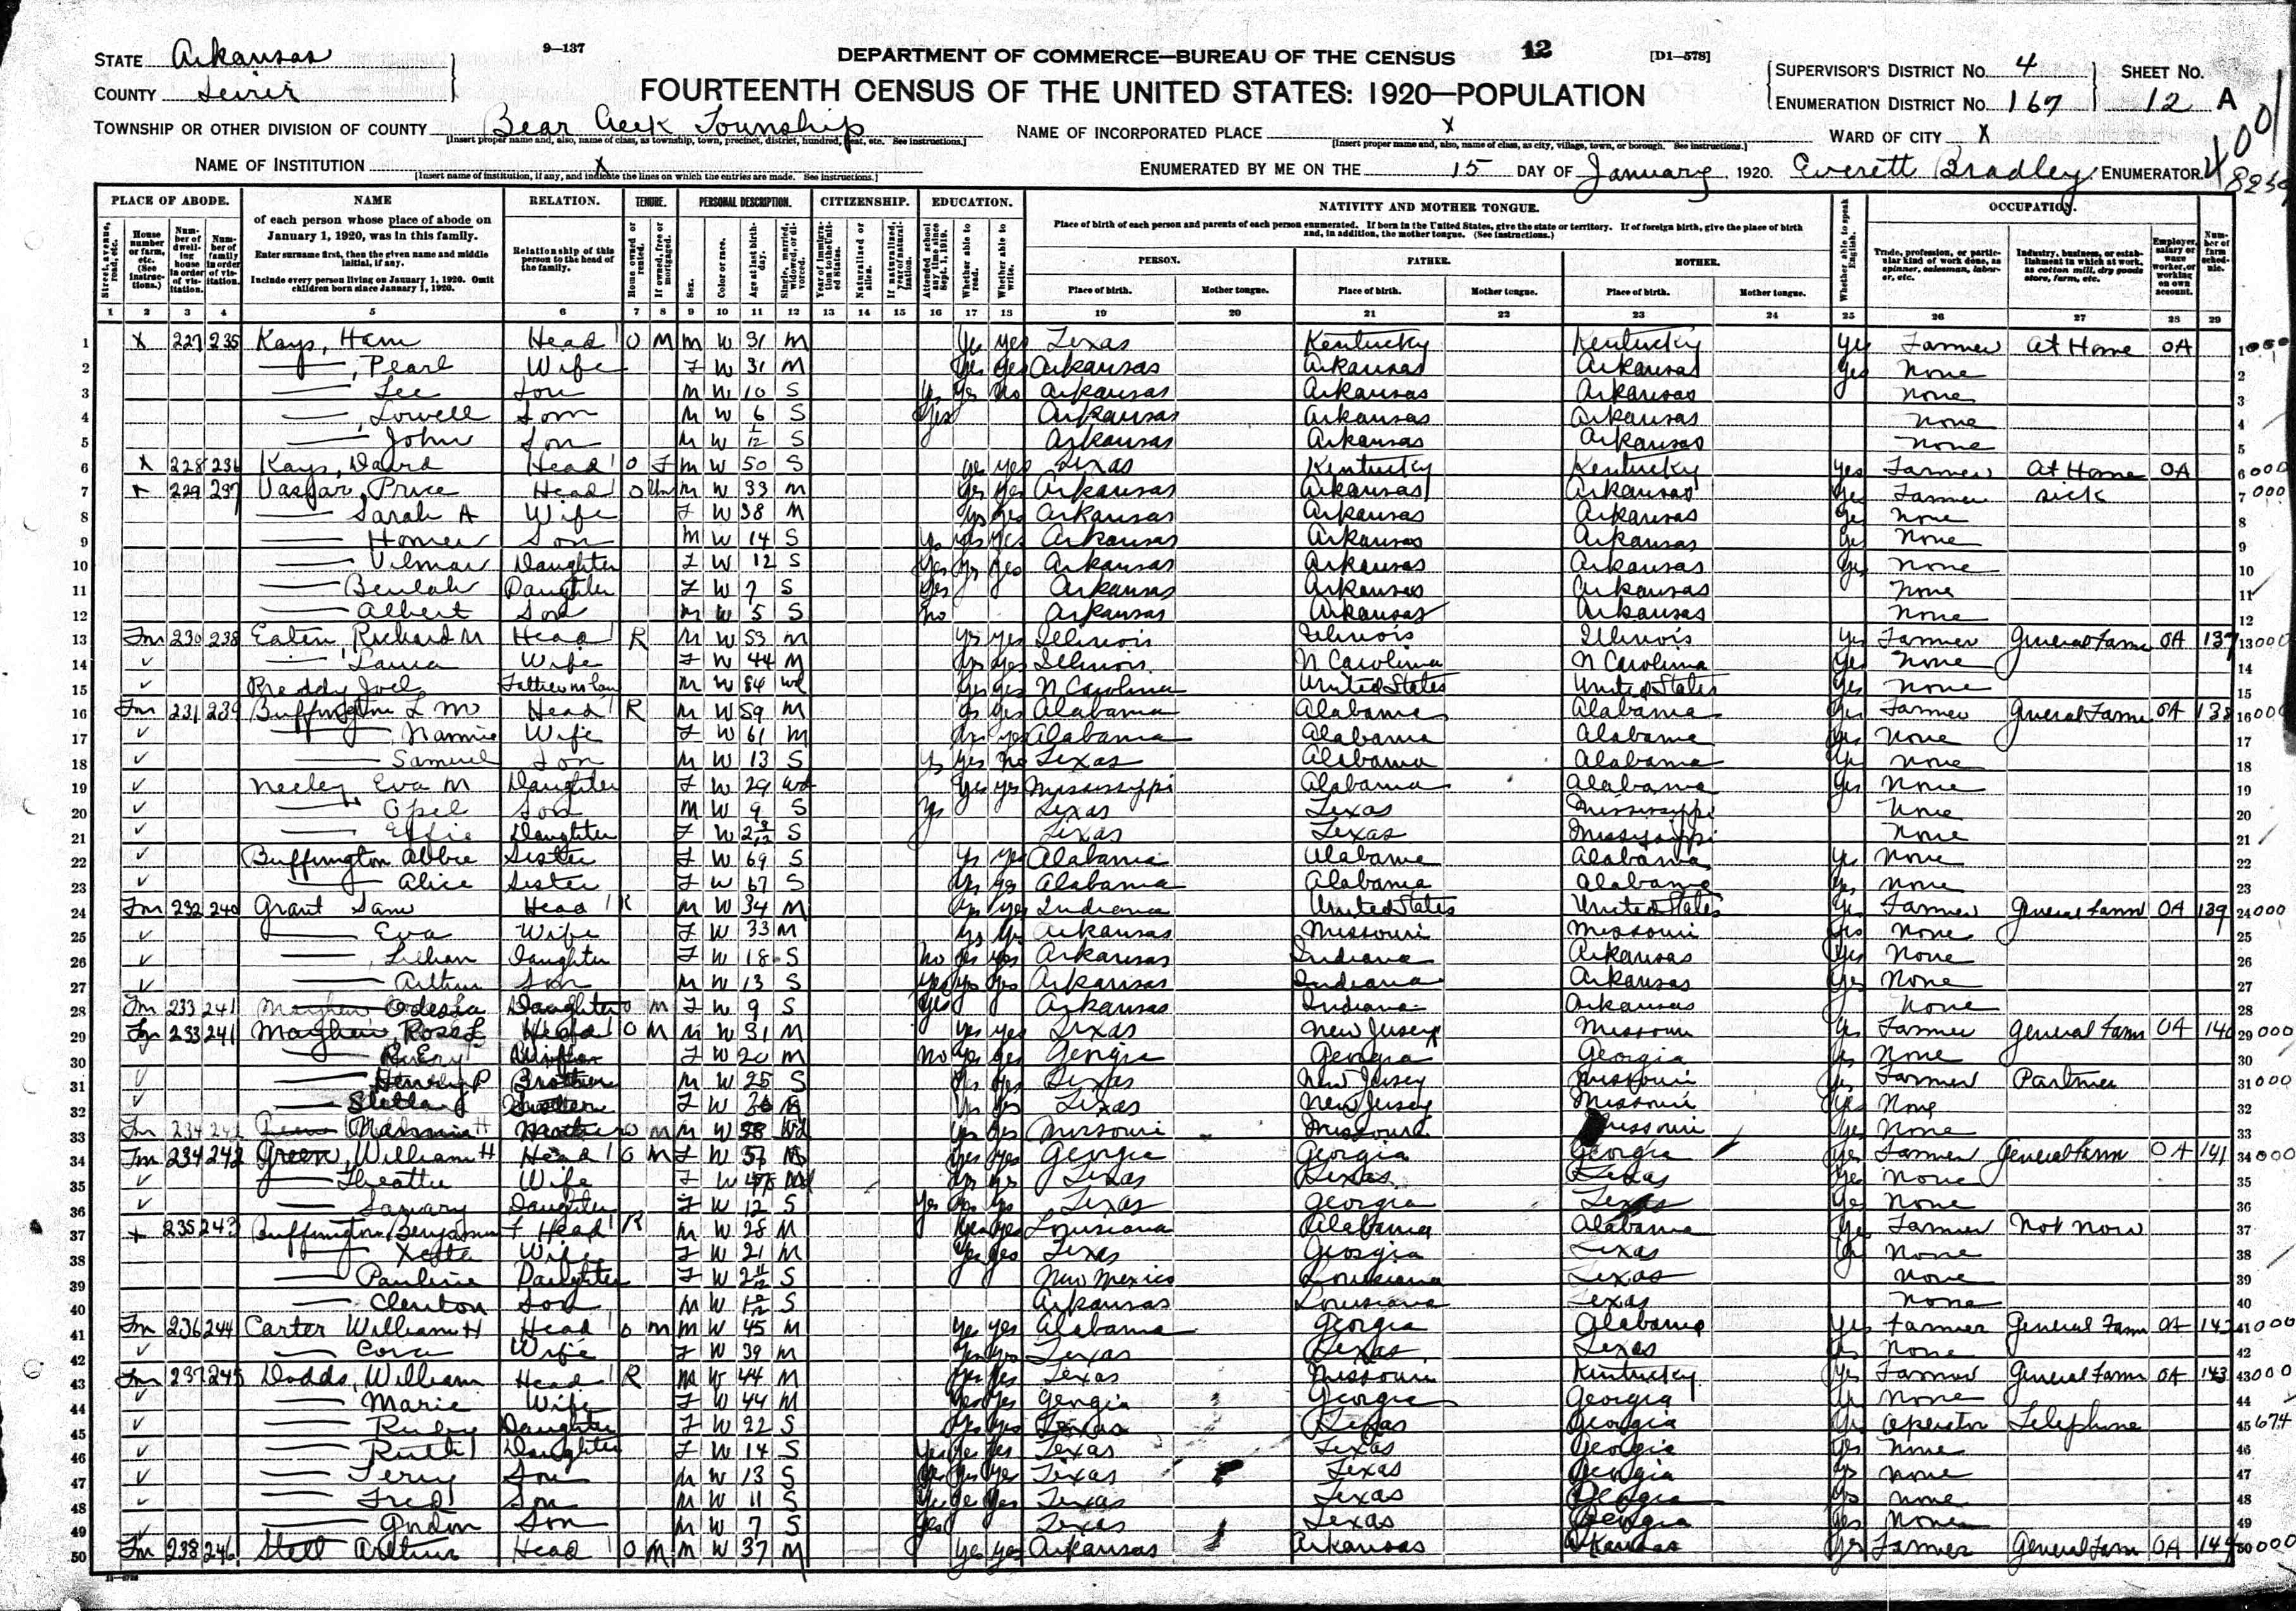 STATE Arkansas
COUNTY Sevier
9—137
DEPARTMENT OF COMMERCE—BUREAU OF THE CENSUS
12
[D1—578]
FOURTEENTH CENSUS OF THE UNITED STATES: 1920—POPULATION
SUPERVISOR'S DISTRICT No. 4 SHEET No.
ENUMERATION DISTRICT No. 167 12 A
TOWNSHIP OR OTHER DIVISION OF COUNTY Bear Creek Township
NAME OF INCORPORATED PLACE X
WARD OF CITY X
NAME OF INSTITUTION X
ENUMERATED BY ME ON THE 15 DAY OF January, 1920. Everett Bradley ENUMERATOR.
PLACE OF ABODE. NAME RELATION. TENURE. PERSONAL DESCRIPTION. CITIZENSHIP. EDUCATION. NATIVITY AND MOTHER TONGUE. OCCUPATION.
of each person whose place of abode on January 1, 1920, was in this family.
Enter surname first, then the given name and middle initial, if any.
Include every person living on January 1, 1920. Omit children born since January 1, 1920.
Relationship of this person to the head of the family.
Place of birth of each person and parents of each person enumerated. If born in the United States, give the state or territory. If of foreign birth, give the place of birth and, in addition, the mother tongue. (See instructions.)
PERSON. FATHER. MOTHER.
Place of birth. Mother tongue. Place of birth. Mother tongue. Place of birth. Mother tongue.
1 2 3 4 5 6 7 8 9 10 11 12 13 14 15 16 17 18 19 20 21 22 23 24 25 26 27 28 29
1 X 227 235 Kays, Ham Head O M M W 31 M Yes yes Texas Kentucky Kentucky Yes Farmer At Home OA
2 —, Pearl Wife F W 31 M Yes Yes Arkansas Arkansas Arkansas Yes None
3 — Lee Son M W 10 S Yes Yes No Arkansas Arkansas Arkansas None
4 —, Lowell Son M W 6 S Yes Arkansas Arkansas Arkansas None
5 — John Son M W 1/12 S Arkansas Arkansas Arkansas None
6 X 228 236 Kays, David Head O F M W 50 S yes yes Texas Kentucky Kentucky Yes Farmer At Home OA
7 X 229 237 Price Head O M W 33 M Yes Yes Arkansas Arkansas Arkansas Yes Farmer sick
8 — Sarah A Wife F W 38 M Yes Yes Arkansas Arkansas Arkansas Yes None
9 — Homer Son M W 14 S Yes yes yes Arkansas Arkansas Arkansas Yes None
10 — Vilmar Daughter F W 12 S Yes Yes Yes Arkansas Arkansas Arkansas Yes None
11 — Beulah Daughter F W 7 S Yes Arkansas Arkansas Arkansas None
12 — Albert Son M W 5 S no Arkansas Arkansas Arkansas None
13 Fm 230 238 Richard M Head R M W 53 M yes yes Illinois Illinois Illinois Yes Farmer General Farm OA 137
14 ✓ — Laura Wife F W 44 M Yes Yes Illinois N Carolina N Carolina Yes None
15 ✓ Joel Father in law M W 84 wd Yes yes N Carolina United States United States Yes None
16 Fm 231 239 Buffington L M Head R M W 59 M yes yes Alabama Alabama Alabama Yes Farmer General Farm OA 138
17 ✓ — Nannie Wife F W 61 M Yes yes Alabama Alabama Alabama Yes None
18 ✓ — Samuel Son M W 13 S Ys Yes No Texas Alabama Alabama Yes None
19 ✓ Neeley Eva M Daughter F W 29 wd Yes yes Mississippi Alabama Alabama Yes None
20 ✓ — Opel Son M W 9 S Ys Texas Texas Mississippi None
21 ✓ — Effie Daughter F W S Texas Texas Mississippi None
22 ✓ Buffington Abbie Sister F W 69 S Ys Yes Alabama Alabama Alabama Ys None
23 ✓ — Alice Sister F W 67 S Yes Yes Alabama Alabama Alabama Yes None
24 Fm 232 240 Grant Sam Head R M W 34 M Yes Yes Indiana United States United States Yes Farmer General Farm OA 139
25 ✓ — Eva Wife F W 33 M Yes Ys Arkansas Missouri Missouri Yes None
26 ✓ — Lillian Daughter F W 18 S No Yes Yes Arkansas Indiana Arkansas Yes None
27 ✓ — Arthur Son M W 13 S Yes Yes Yes Arkansas Indiana Arkansas Yes None
28 Fm 233 241 Odessa Daughter O M F W 9 S Yes Arkansas Indiana Arkansas None
29 Fm 233 241 Mayhew, Ross L Head O M M W 31 M Yes yes Texas New Jersey Missouri Yes Farmer General Farm OA 140
30 F W 20 M No Yes Yes Georgia Georgia Georgia Yes None
31 ✓ — Henry P Brother M W 25 S Yes Yes Texas New Jersey Missouri Yes Farmer Partner
32 ✓ — Stella F W Ys Yes Texas New Jersey Missouri Yes None
33 Fm 234 Mother O M 58 Wd Yes Yes Missouri Missouri Missouri Yes None
34 Fm 234 242 Green, William H Head O M F W 57 M Yes Yes Georgia Georgia Georgia Yes Farmer General Farm OA 141
35 ✓ Wife F W Yes Yes Texas Texas Texas Yes None
36 ✓ Daughter F W 12 S Yes Yes Yes Texas Georgia Texas Yes None
37 X 235 243 Buffington Benjamin F Head R M W 28 M Yes Yes Louisiana Alabama Alabama Yes Farmer Not Now
38 Wife F W 21 M Yes yes Texas Georgia Texas Yes None
39 — Pauline Daughter F W 2 11/12 S New Mexico Louisiana Texas None
40 — Clenton Son M W S Arkansas Louisiana Texas None
41 Fm 236 244 Carter William H Head O M M W 45 M Yes yes Alabama Georgia Alabama Yes Farmer General Farm OA 142
42 ✓ — Cora Wife F W 39 M Yes Yes Texas Texas Texas Yes None
43 Fm 237 245 Dodds, William Head R M W 44 M Yes Yes Texas Missouri Kentucky Yes Farmer General Farm OA 143
44 ✓ — Marie Wife F W 44 M Yes Yes Georgia Georgia Georgia Yes None
45 ✓ — Ruby Daughter F W 22 S Yes Yes Texas Texas Georgia Yes Operator Telephone
46 ✓ — Ruth Daughter F W 14 S Yes Yes Yes Texas Texas Georgia Yes None
47 ✓ — Terry Son M W 13 S Yes Yes Yes Texas Texas Georgia Yes None
48 ✓ — Fred Son M W 11 S Yes Yes Yes Texas Texas Georgia Yes None
49 ✓ — Gordon Son M W 7 S Yes Texas Texas Georgia Yes None
50 Fm 238 246 Arthur Head O M M W 37 M Yes Yes Arkansas Arkansas Arkansas Yes Farmer General Farm OA 144